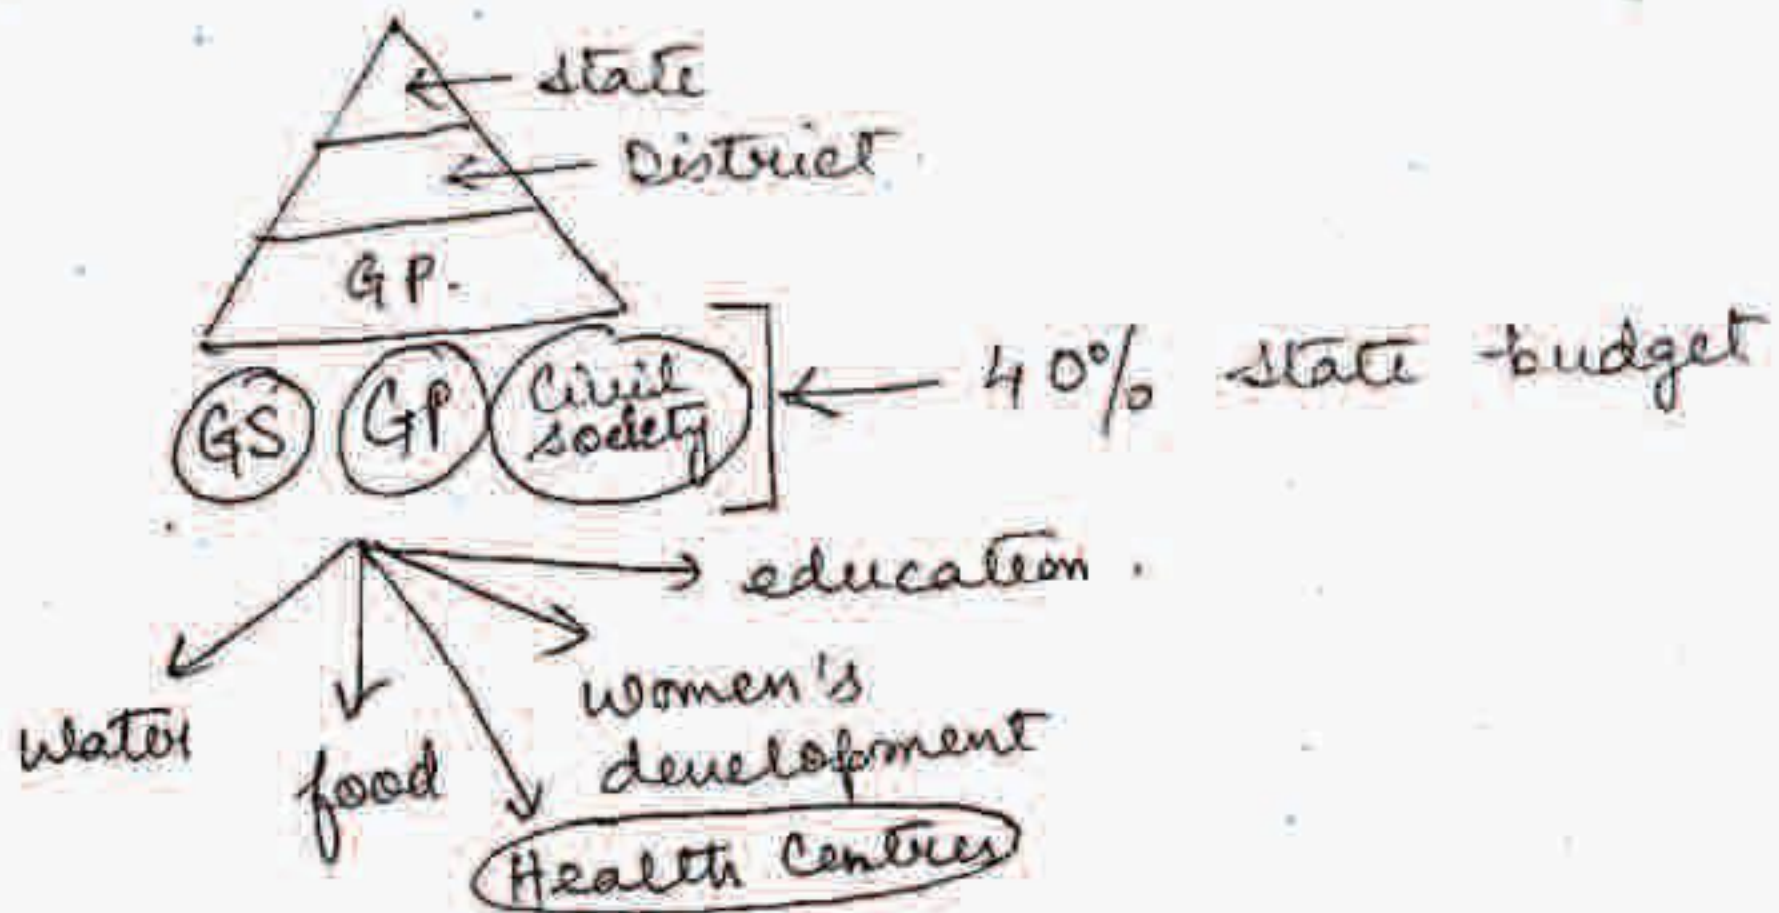 state
District
GP.
GS
GP
Civil
society
40% state budget
education.
women's
development
water
food
Health Centres